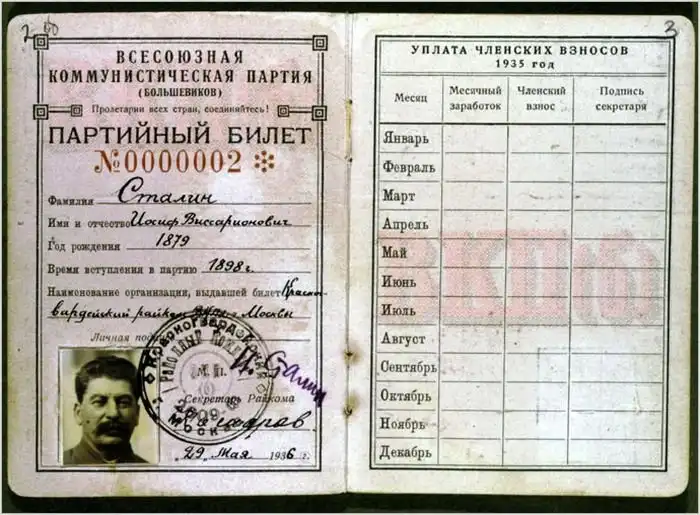 2
3
ВСЕСОЮЗНАЯ
КОММУНИСТИЧЕСКАЯ ПАРТИЯ
(БОЛЬШЕВИКОВ)
Пролетарии всех стран, соединяйтесь!
ПАРТИЙНЫЙ БИЛЕТ
№0000002
Фамилия Сталин
Имя и отчество Иосиф Виссарионович
Год рождения 1879
Время вступления в партию 1898 г.
Наименование организации, выдавшей билет Красно
гвардейский райком г. Москвы
Личная
М. П.
Секретарь Райкома
"29" Мая 1936 г.
УПЛАТА ЧЛЕНСКИХ ВЗНОСОВ
1935 год
Месяц Месячный заработок Членский взнос Подпись секретаря
Январь
Февраль
Март
Апрель
Май
Июнь
Июль
Август
Сентябрь
Октябрь
Ноябрь
Декабрь
ВКП(б)